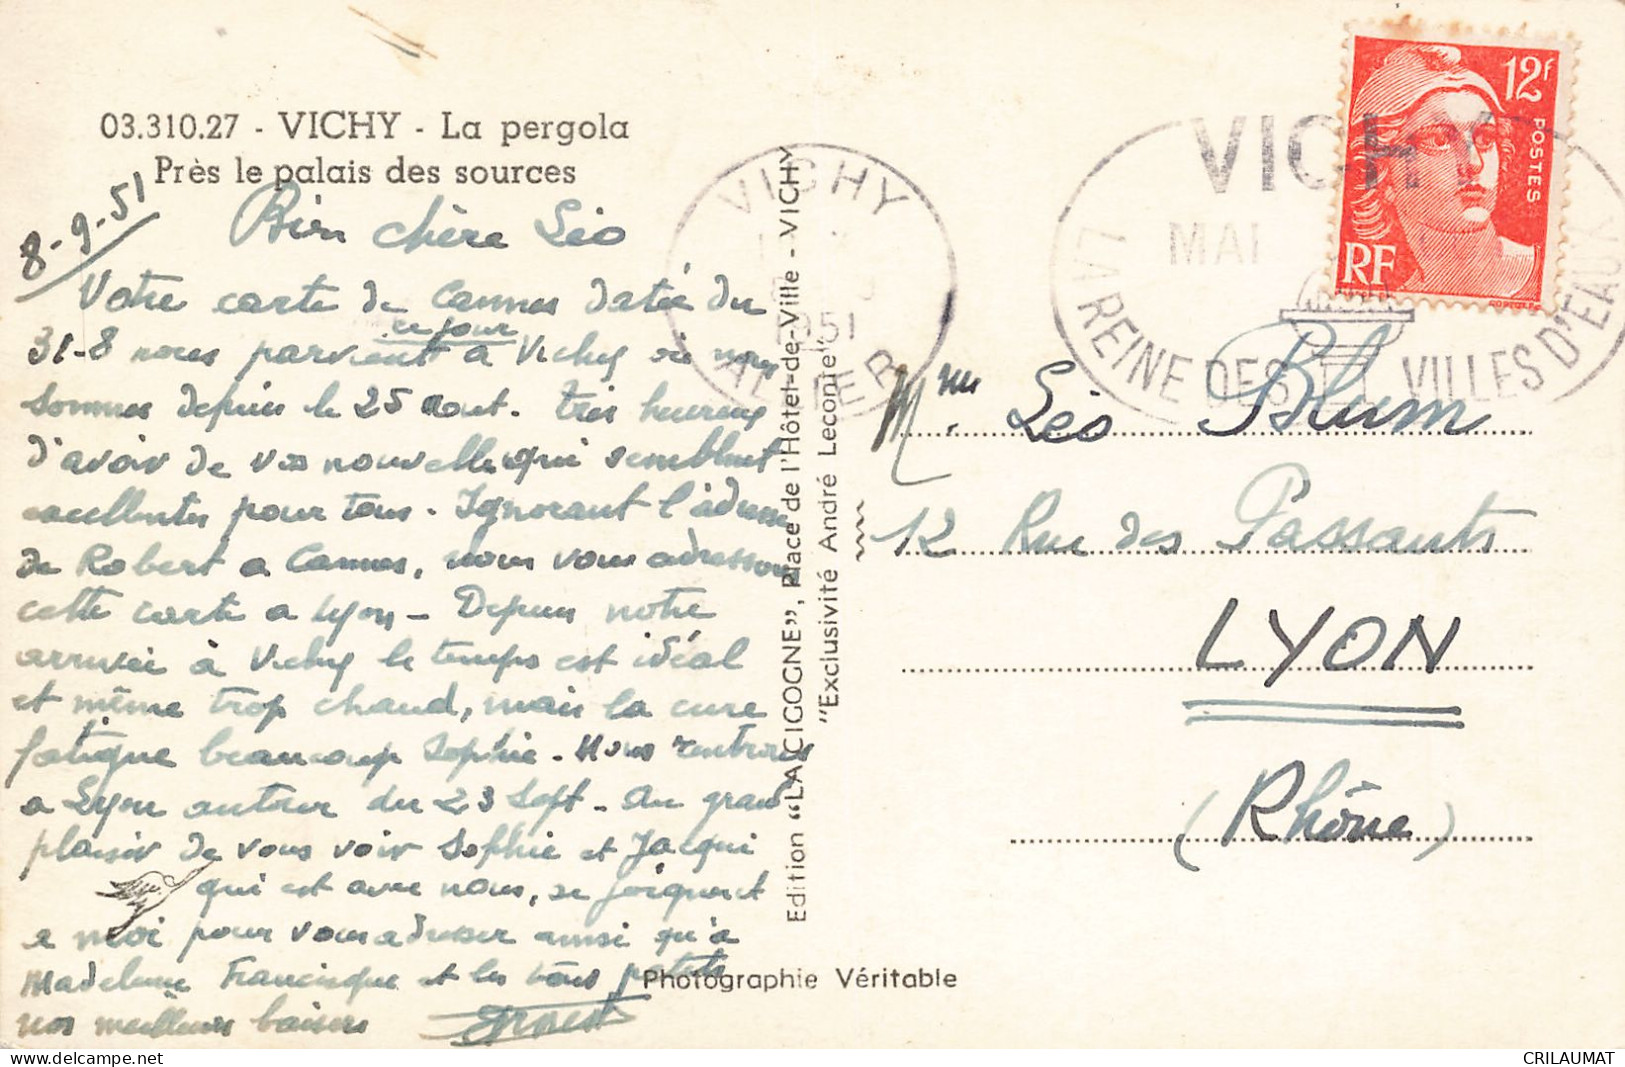 03.310.27 - VICHY - La pergola
Près le palais des sources
8-9-51
Bien chère Léo
Votre carte de Cannes datée du
31-8 nous parvient ce jour à Vichy où nous
sommes depuis le 25 aout. très heureux
d'avoir de vos nouvelles qui semblent
excellentes pour tous. Ignorant l'adresse
de Robert a Cannes, nous vous adressons
cette carte a Lyon - Depuis notre
arrivée à Vichy le temps est idéal
et même trop chaud, mais la cure
fatigue beaucoup Sophie. Nous rentrons
a Lyon autour du 23 Sept. Au grand
plaisir de vous voir Sophie et Jacqui
qui est avec nous, se joignent
a moi pour vous adresser ainsi qu'à
Madeleine Francisque et les petits
nos meilleurs baisers Ernest
Edition "LA CIGOGNE", Place de l'Hôtel-de-Ville - VICHY
"Exclusivité André Leconte"
Photographie Véritable
VICHY
1951
ALLIER
VICHY
MAI
LA REINE DES VILLES D'EAUX
12f
POSTES
RF
Mme Léo Blum
12 Rue des Passants
LYON
(Rhône)
CRILAUMAT